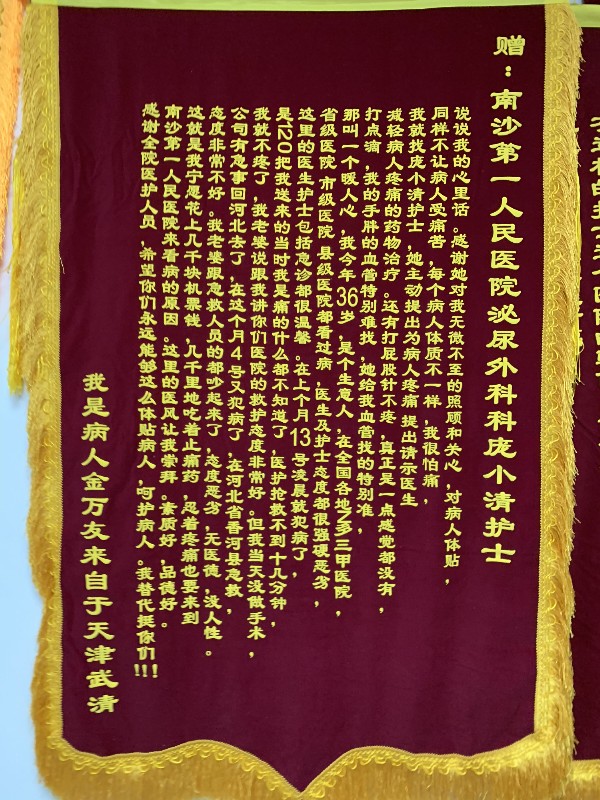 赠：南沙第一人民医院泌尿外科科庞小清护士
说说我的心里话。感谢她对我无微不至的照顾和关心，对病人体贴，
同样不让病人受痛苦，每个病人体质不一样，我很怕痛，
我就找庞小清护士，她主动提出为病人疼痛 提出请示医生
减轻病人疼痛的药物治疗。还有打屁股针不疼，真正是一点感觉都没有，
打点滴，我的手胖的血管特别难找，她给我血管找的特别准，
那叫一个暖人心，我今年36岁，是个生意人，在全国各地7多三甲医院，
省级医院 市级医院 县级医院都看过病，医生及护士态度都很强硬恶劣，
这里的医生护士包括急诊都很温馨。在上个月13号凌晨就犯病了，
是120把我送来的当时我是痛的什么都不知道了，医护抢救不到十几分钟，
我就不疼了，我老婆说跟我讲你们医院的救护态度非常好。但我当天没做手术，
公司有急事回河北去了，在这个月4号又犯病了，在河北省香河县急救，
态度非常不好。我老婆跟急救人员的都吵起来了，态度恶劣，无医德，没人性。
这就是我宁愿花上几千块机票钱，几千里地吃着止痛药，忍着疼痛也要来到
南沙第一人民医院来看病的原因。这里的医风让我崇拜。素质好，品德好。
感谢全院医护人员，希望你们永远能够这么体贴病人，呵护病人。我替代挺你们!!!
我是病人金万友来自于天津武清